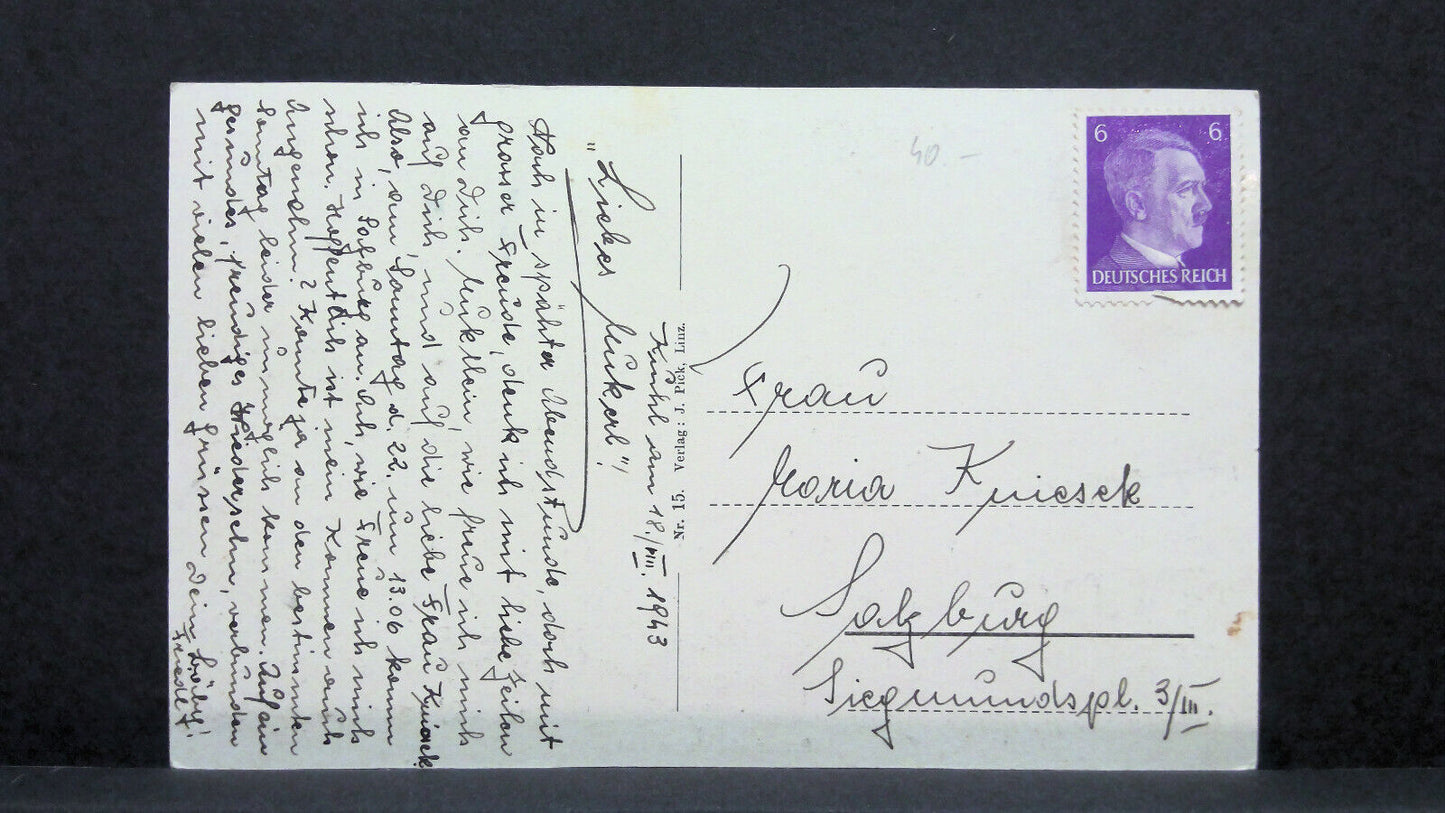 Kühl am 18./VIII. 1943
"Liebes Mukerl!"
Noch in spähter Abendstunde, doch mit
grosser Freude, denk ich mit liebe Zeilen
an Dich. Muklein, wie freue ich mich
auf Dich, und auf die liebe Frau Kniesek.
Also, am Sonntag d. 22. um 13.06 komm
ich in Salzburg an. Ach, wie Freue ich mich
schon. Hoffentlich ist mein Kommen auch
Angenehm? Konnte ja an den bestimmten
Sonntag leider unmöglich kommen. Auf ein
gesundes, freudiges Wiedersehn, verbunden
mit vielen lieben grüssen Dein
Friedl!
Nr. 15. Verlag: J. Pick, Linz.
40.-
6 6
DEUTSCHES REICH
Frau
Maria Kniesek
Salzburg
Siegmundspl. 3/III.